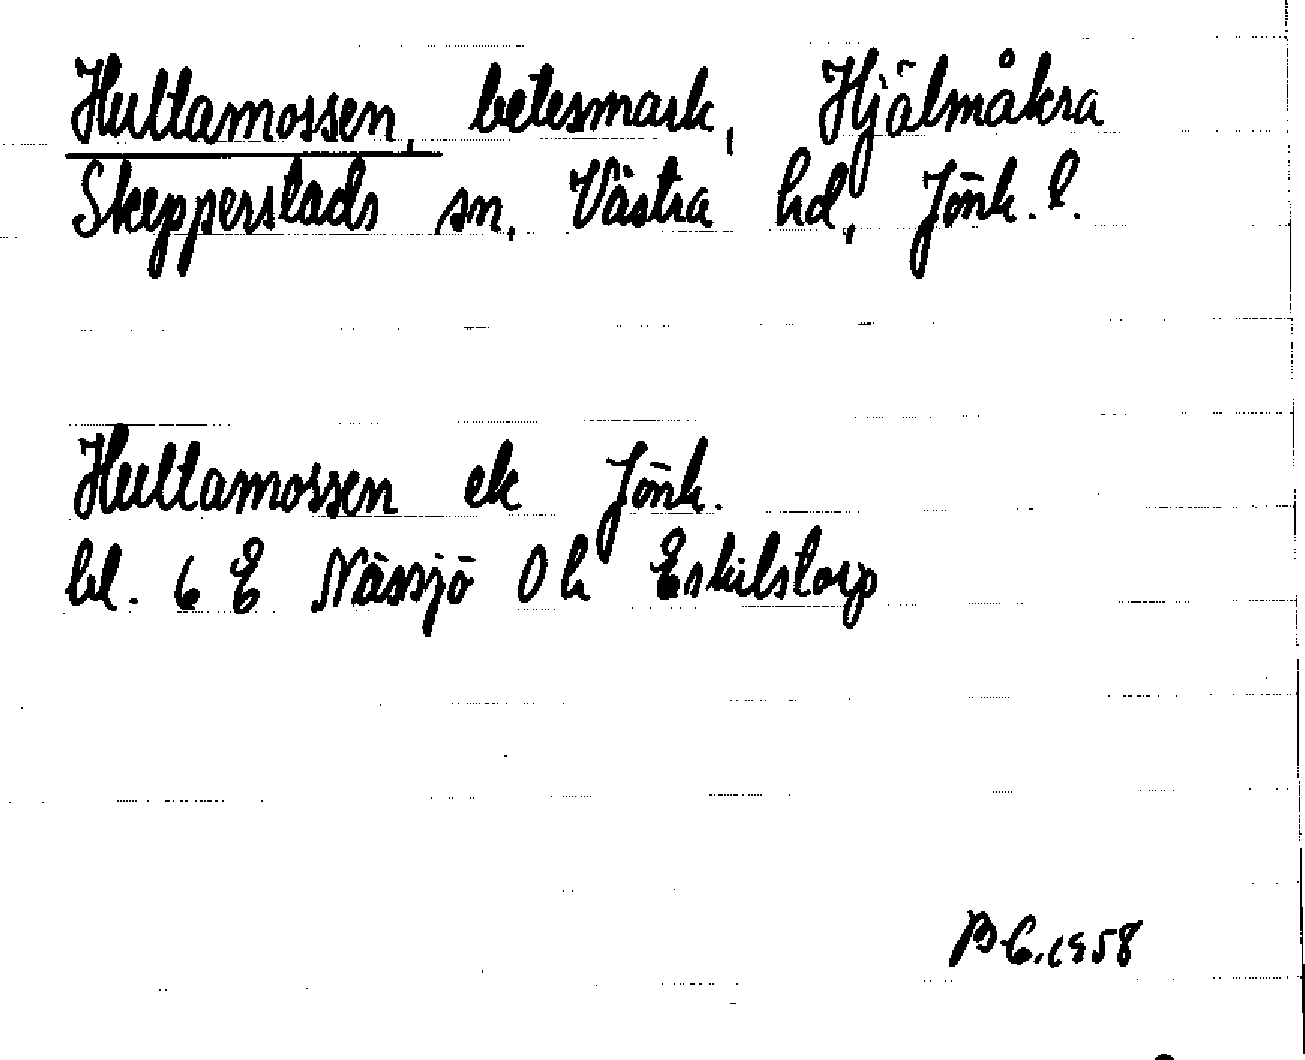 Hultamossen, betesmark, Hjälmåkra
Skepperstads sn, Västra hd, Jönk. l.
Hultamossen ek Jönk.
bl. 6 E Nässjö 0 h Eskilstorp
B G. 1958